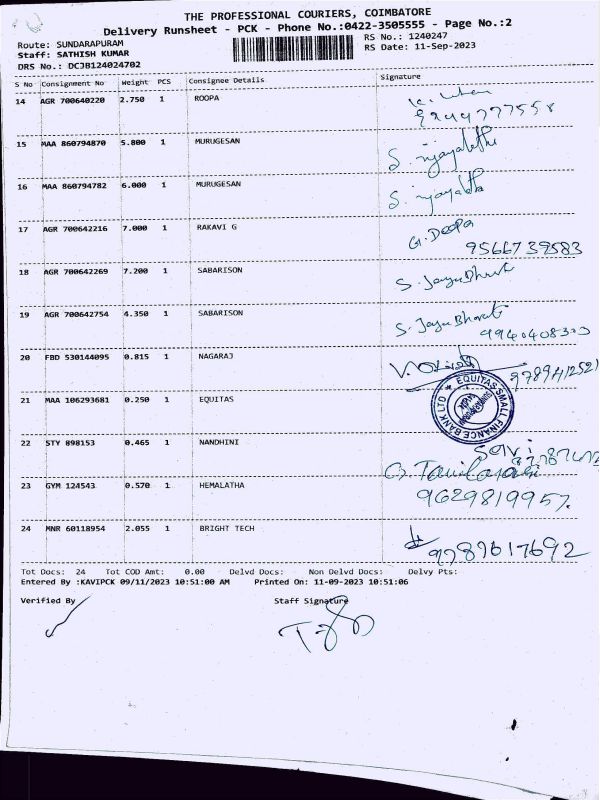 THE PROFESSIONAL COURIERS, COIMBATORE
Delivery Runsheet - PCK - Phone No.:0422-3505555 - Page No.:2
Route: SUNDARAPURAM RS No.: 1240247
Staff: SATHISH KUMAR RS Date: 11-Sep-2023
DRS No.: DCJB124024702
S No Consignment No Weight PCS Consignee Details Signature
14 AGR 700640220 2.750 1 ROOPA
15 MAA 860794870 5.800 1 MURUGESAN
16 MAA 860794782 6.000 1 MURUGESAN
17 AGR 700642216 7.000 1 RAKAVI G G. Deepa
9566739583
18 AGR 700642269 7.200 1 SABARISON S. Jaya Bharat
19 AGR 700642754 4.350 1 SABARISON S. Jaya Bharat
9940408303
20 FBD 530144095 0.815 1 NAGARAJ
21 MAA 106293681 0.250 1 EQUITAS EQUITAS SMALL FINANCE BANK LTD
22 STY 898153 0.465 1 NANDHINI Selvi
23 GYM 124543 0.570 1 HEMALATHA G. Tamilarasi
9629819957.
24 MNR 60118954 2.055 1 BRIGHT TECH 9789617692
Tot Docs: 24 Tot COD Amt: 0.00 Delvd Docs: Non Delvd Docs: Delvy Pts:
Entered By :KAVIPCK 09/11/2023 10:51:00 AM Printed On: 11-09-2023 10:51:06
Verified By Staff Signature